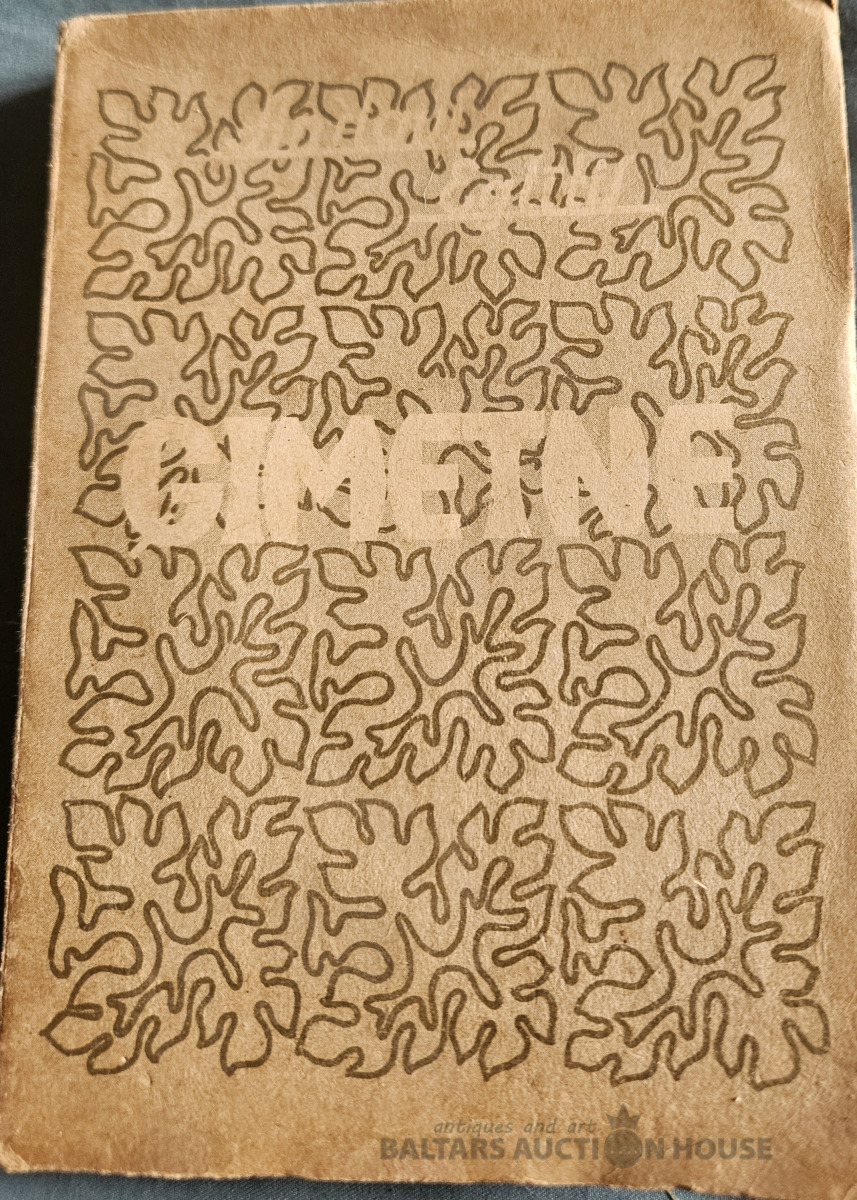 ĢIMETNE
antiques and art
BALTARS AUCTION HOUSE